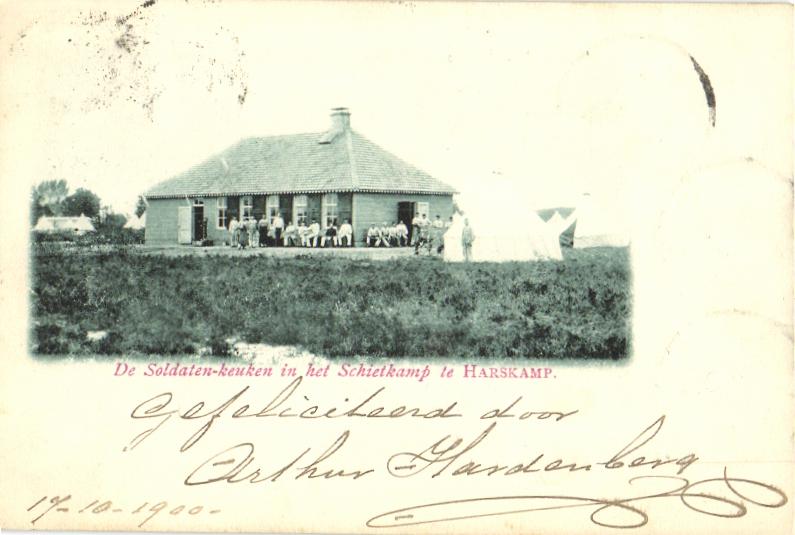 De Soldaten-keuken in het Schietkamp te HARSKAMP.
Gefeliciteerd door
Arthur Hardenberg
17-10-1900-